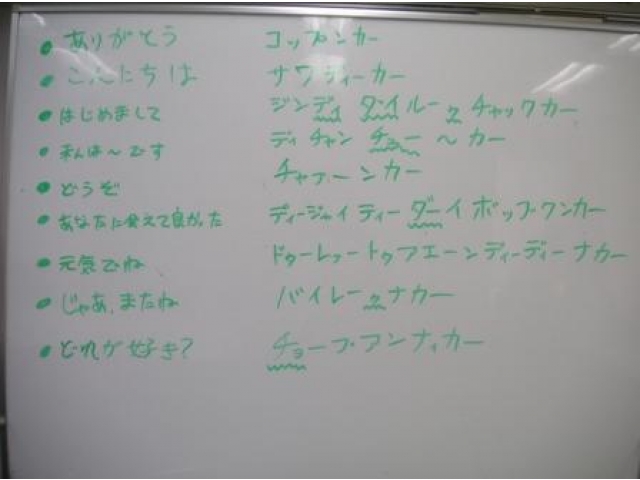 ・ありがとう コップンカー
・こんにちは サワディーカー
・はじめまして ジンディ ダイルーク チャックカー
・私は～です ディチャン チュー ～ カー
・どうぞ チャブーンカー
・あなたに会えて良かった ディージャイティーダーイポップクンカー
・元気でね ドゥーレェートゥアエーンディーディーナカー
・じゃあ、またね パイレークナカー
・どれが好き? チョープアンナイカー